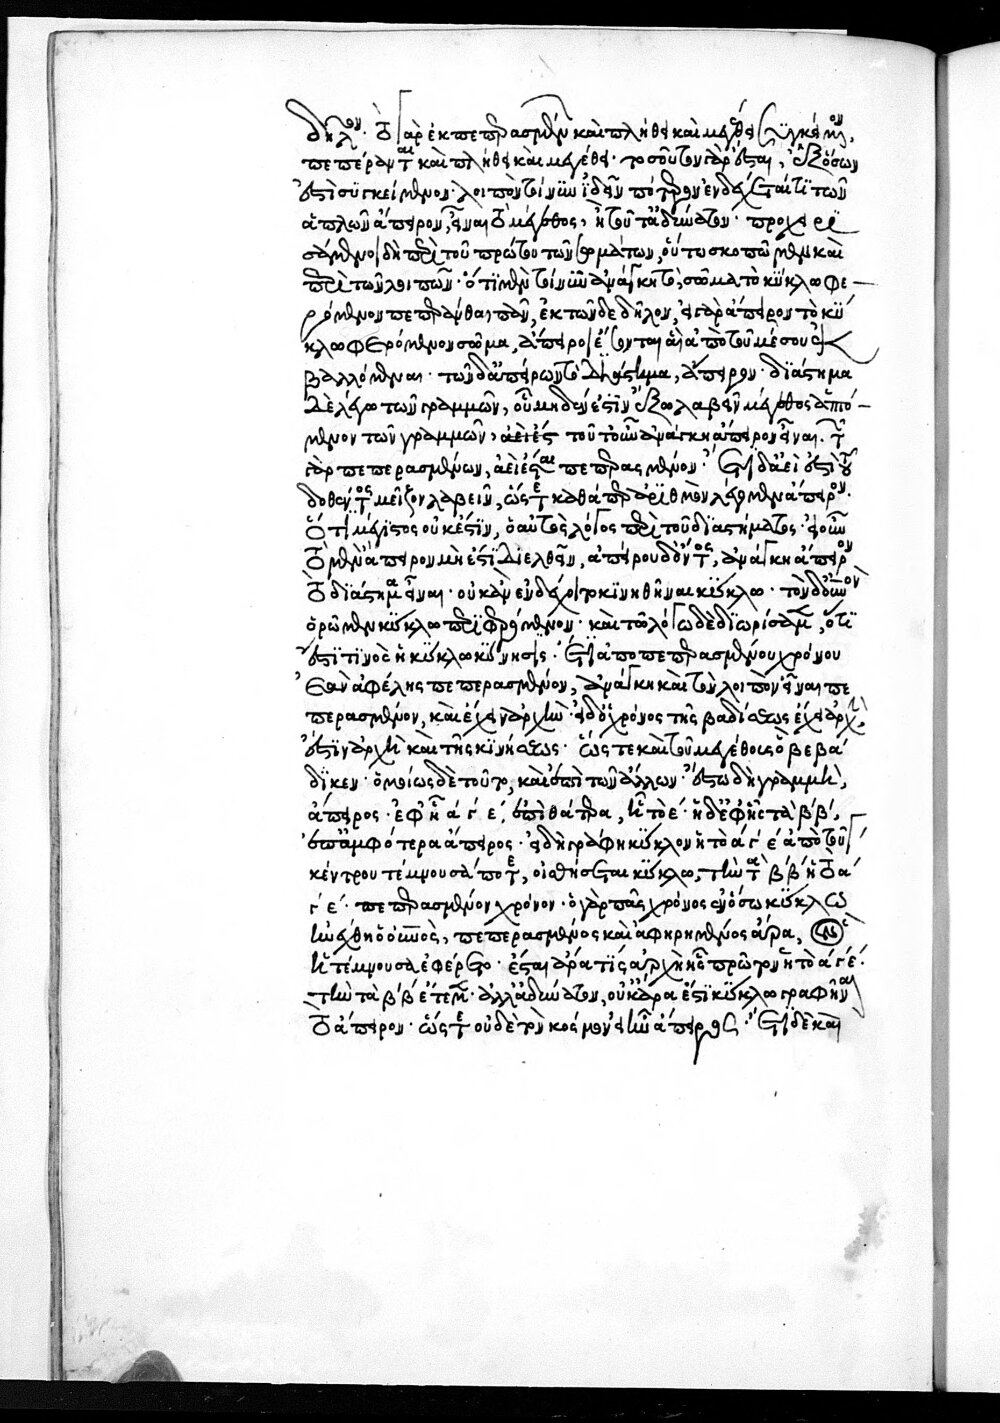 δῆλον· τὸ γὰρ ἐκ πεπερασμένων καὶ πλήθει καὶ μεγέθει συγκείμενον,
πεπέρανται καὶ πλήθει καὶ μεγέθει· τοσοῦτον γάρ ἐσται, ἐξ ὅσων
ἐστὶ συγκείμενον· λοιπὸν τοίνυν ἰδεῖν πότερον ἐνδέχεταί τι τῶν
ἁπλῶν ἄπειρον, εἶναι τὸ μέγεθος, ἢ τοῦτ' ἀδύνατον· προχειρι
σάμενοι δὴ περὶ τοῦ πρώτου τῶν σωμάτων, οὕτω σκοπῶμεν καὶ
περὶ τῶν λοιπῶν· ὅτι μὲν τοίνυν ἀνάγκη τὸ σῶμα τὸ κύκλω φε
ρόμενον πεπεράνθαι πᾶν, ἐκ τῶνδε δῆλον, εἰ γὰρ ἄπειρον τὸ κύ
κλω φερόμενον σῶμα, ἄπειροι ἔσονται αἱ ἀπὸ τοῦ μέσου ἐκ
βαλλόμεναι· τῶν δ' ἀπείρων τὸ διάστημα, ἄπειρον· διάστημα
δὲ λέγω τῶν γραμμῶν, οὗ μηδέν ἐστιν ἔξω λαβεῖν μέγεθος ἁπτό
μενον τῶν γραμμῶν, τοῦτο οὖν ἀνάγκη ἄπειρον εἶναι. τῶν
γὰρ πεπερασμένων, ἀεὶ ἔσται πεπερασμένον· ἔτι δ' ἀεὶ ἐστὶ τοῦ
δοθέντος μεῖζον λαβεῖν, ὥστε καθάπερ ἀριθμὸν λέγομεν ἄπειρον.
ὅτι μέγιστος οὐκ ἔστιν, ὁ αὐτὸς λόγος περὶ τοῦ διαστήματος· εἰ οὖν
τὸ μὲν ἄπειρον μὴ ἔστι διελθεῖν, ἀπείρου δ' ὄντος, ἀνάγκη ἄπειρον
τὸ διάστημα εἶναι· οὐκ ἂν ἐνδέχοιτο κινηθῆναι κύκλω· τὸν δ' οὐρανὸν
ὁρῶμεν κύκλω περιφερόμενον· καὶ τῶ λόγω δὲ διωρίσαμεν, ὅτι
ἐστί τινος ἡ κύκλω κίνησις· ἔτι ἀπὸ πεπερασμένου χρόνου
ἐὰν ἀφέλης πεπερασμένον, ἀνάγκη καὶ τὸν λοιπὸν εἶναι πε
περασμένον, καὶ ἔχειν ἀρχήν· εἰ δ' ὁ χρόνος τῆς βαδίσεως ἔχει ἀρχήν,
ἔστιν ἀρχὴ καὶ τῆς κινήσεως· ὥστε καὶ τοῦ μεγέθους ὃ βεβά
δικεν· ὁμοίως δὲ τοῦτο, καὶ ἐπὶ τῶν ἄλλων· ἔστω δὴ γραμμὴ,
ἄπειρος· ἐφ' ἧ ἀ γ ε, ἐπὶ θάτερα, ἧ τὸ ε· ἡ δ' ἐφ' ἧ τὰ β β,
ἐπ' ἀμφότερα ἄπειρος· εἰ δὴ γράψει κύκλον ἡ τὸ ἀ γ ε ἀπὸ τοῦ γ
κέντρου τέμνουσά ποτε, οἰσθήσεται κύκλω, τὴν τὰ β β ἡ τὸ ἀ
γ ε· πεπερασμένον χρόνον· ὁ γὰρ πᾶς χρόνος ἐν ὅσω κύκλω
ἠνέχθη ὁ οὐρανὸς, πεπερασμένος καὶ ἀφηρημένος ἄρα,
ἣ τέμνουσα ἐφέρετο· ἔσται ἄρα τις ἀρχὴ ἧ πρῶτον ἡ τὸ ἀ γ ε·
τὴν τὰ β β ἔτεμεν· ἀλλ' ἀδύνατον, οὐκ ἄρα ἔστι κύκλω στραφῆναι
τὸ ἄπειρον· ὥστε οὐδὲ τὸν κόσμον εἰ ἦν ἄπειρος· ἔτι δὲ καὶ